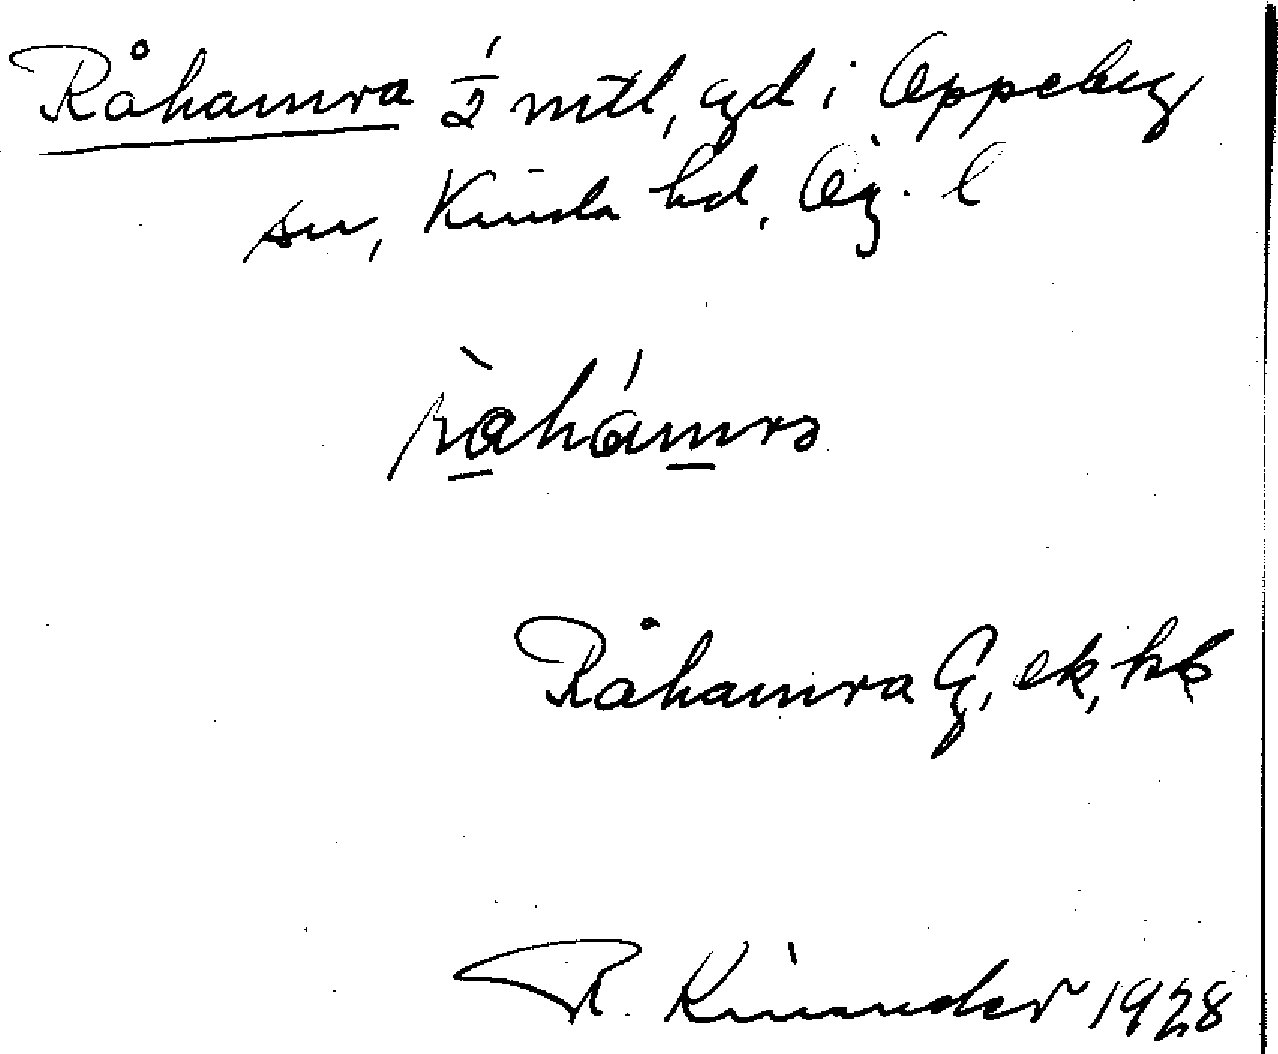 Råhamra 1/2 mtl, gd i Oppeby
sn, Kinda hd, Ög. l
Råhamra G, ek, kb
R. Kinander 1928